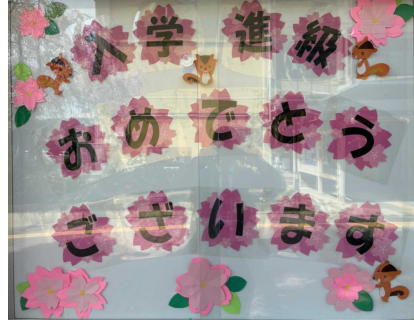 入学進級
おめでとう
ございます